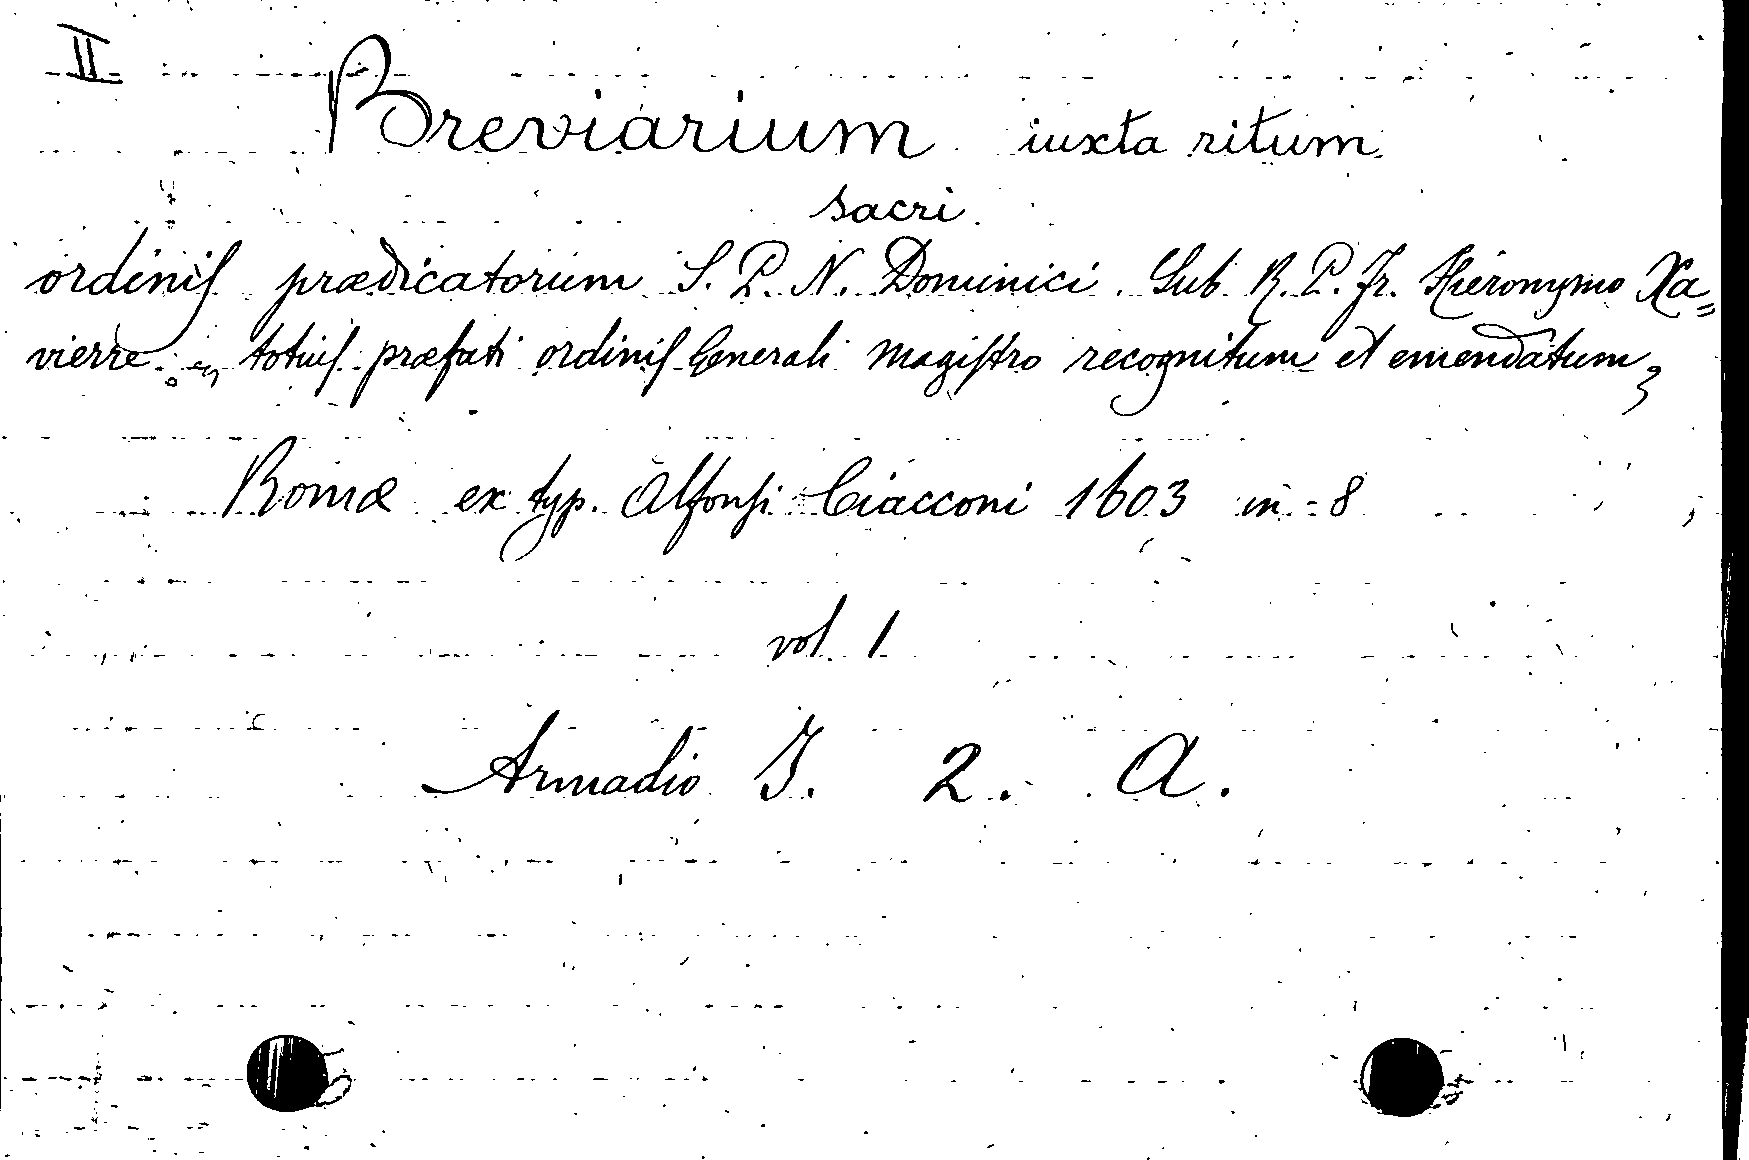 II
Breviarium iuxta ritum
sacri
ordinis prædicatorum S. P. N. Dominici. Sub R. P. Fr. Hieronymo Xa=
vierre totius præfati ordinis Generali Magistro recognitum et emendatum,
Romæ ex typ. Alfonsi Ciacconi 1603 in-8
vol. 1
Armadio I. 2. A.